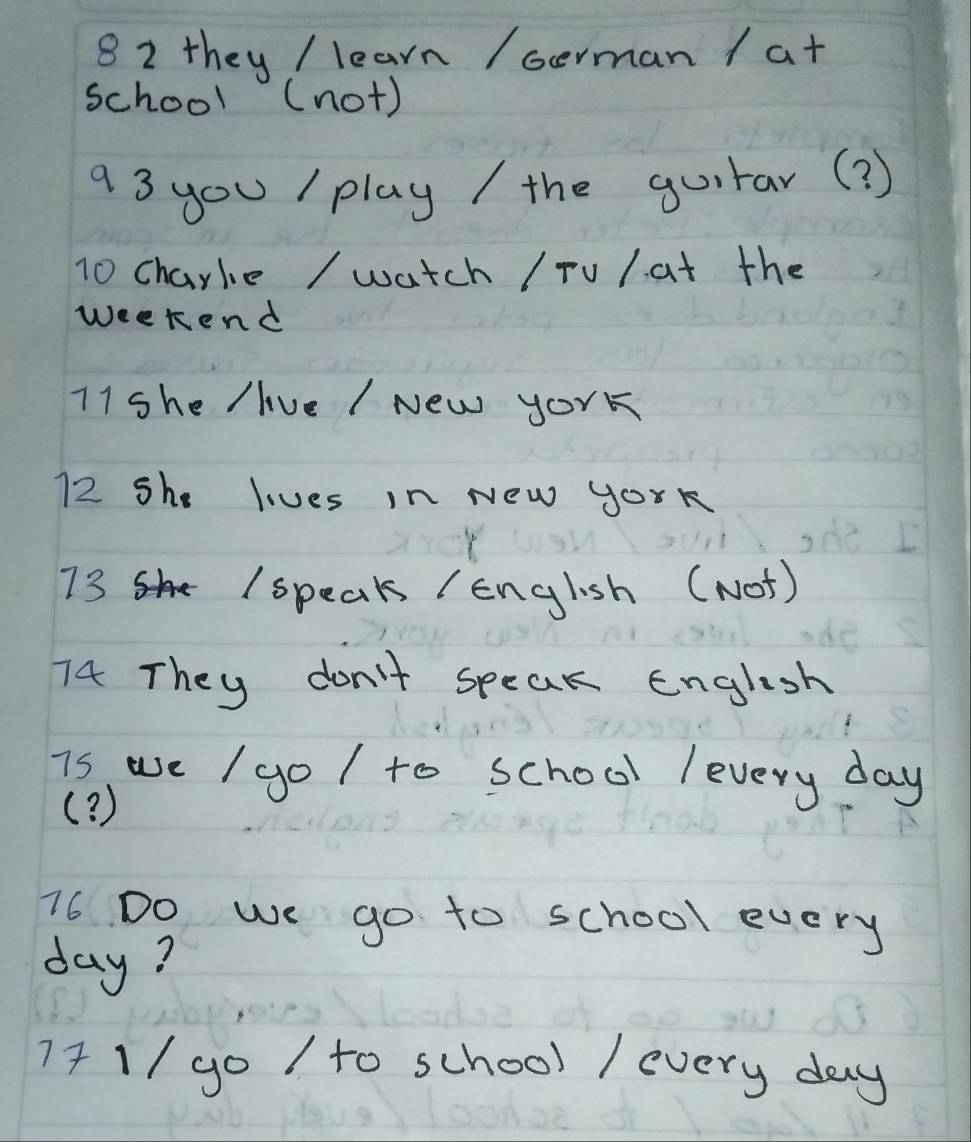 8 2 they / learn / German / at
school (not)
9 3 you / play / the guitar (?)
10 Charlie / watch / TV / at the
weekend
11 she / live / New york
12 She lives in New york
13 she / speak / English (Not)
14 They don't speak English
15 we / go / to school / every day
(?)
16 Do we go to school every
day?
17 1 / go / to school / every day